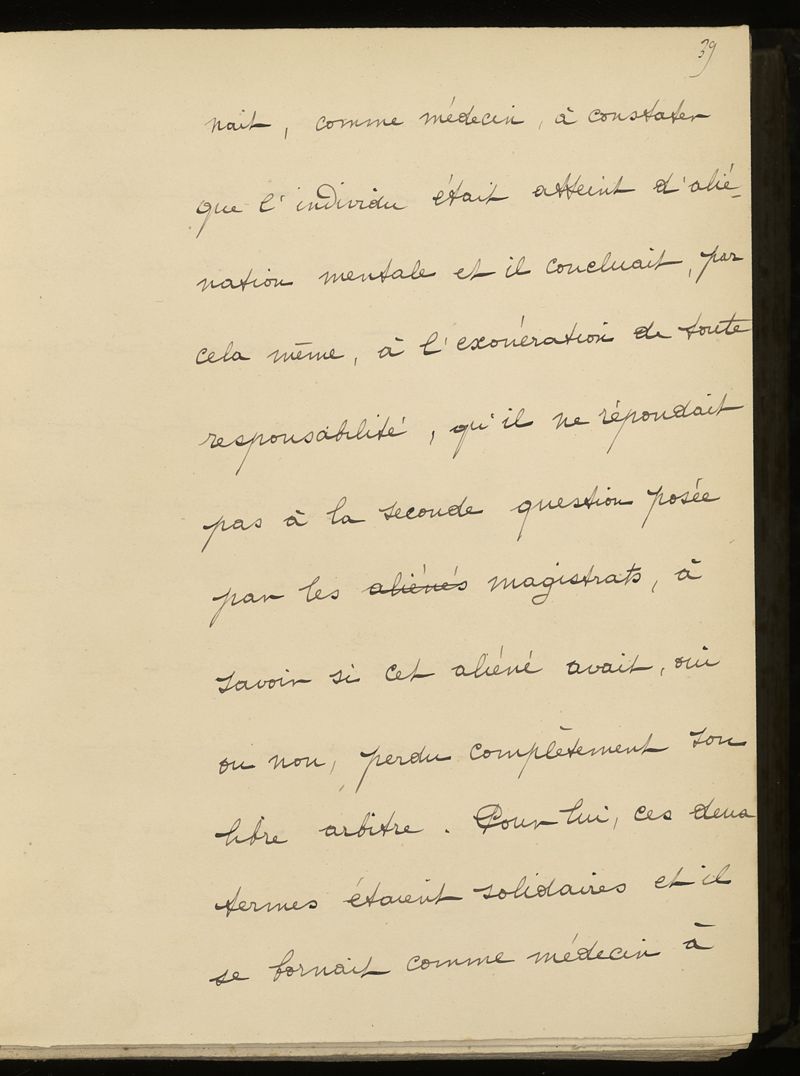 39
nait, comme médecin, à constater
que l'individu était atteint d'alié-
nation mentale et il concluait, par
cela même, à l'exonération de toute
responsabilité, qu'il ne répondait
pas à la seconde question posée
par les aliénés magistrats, à
savoir si cet aliéné avait, oui
ou non, perdu complètement son
libre arbitre. Pour lui, ces deux
termes étaient solidaires et il
se bornait comme médecin à